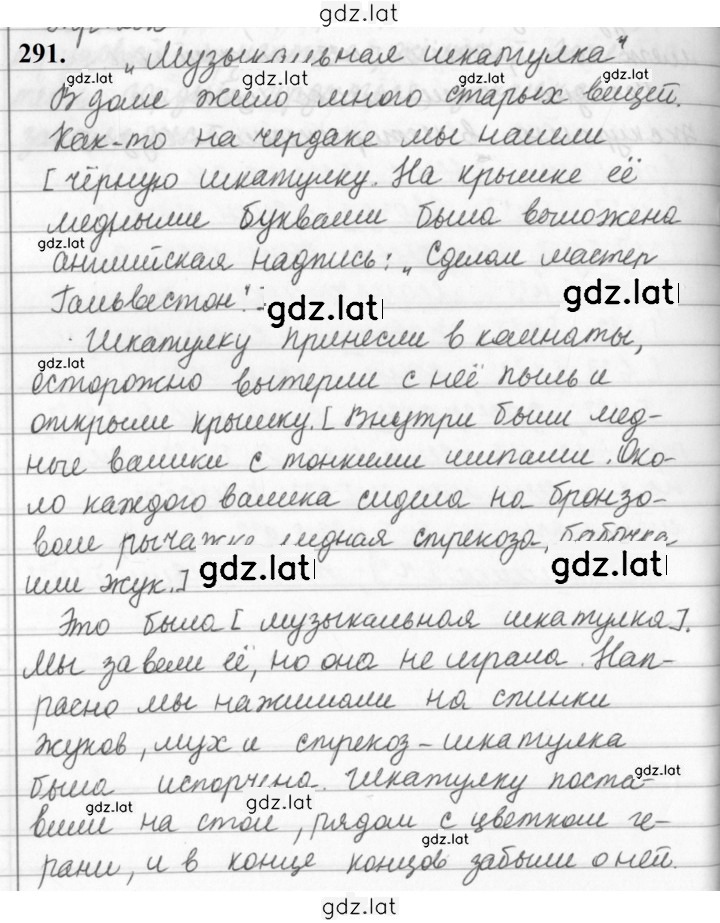 gdz.lat
291. „Музыкальная шкатулка"
gdz.lat gdz.lat gdz.lat gdz.lat
В доме жило много старых вещей.
Как-то на чердаке мы нашли
[ чёрную шкатулку. На крышке её
медными буквами была выложена
gdz.lat
английская надпись: „Сделал мастер
Гальвестон".
gdz.lat gdz.lat
Шкатулку принесли в комнаты,
gdz.lat
осторожно вытерли с неё пыль и
открыли крышку. [ Внутри были мед-
ные валики с тонкими шипами. Око-
ло каждого валика сидела на бронзо-
вом рычажке медная стрекоза, бабочка
или жук.]
gdz.lat gdz.lat
Это была [ музыкальная шкатулка ].
Мы завели её, но она не играла. Нап-
расно мы нажимали на спинки
жуков, мух и стрекоз - шкатулка
была испорчена. Шкатулку поста-
gdz.lat gdz.lat gdz.lat
вили на стол, рядом с цветком ге-
gdz.lat
рани, и в конце концов забыли о ней.
gdz.lat